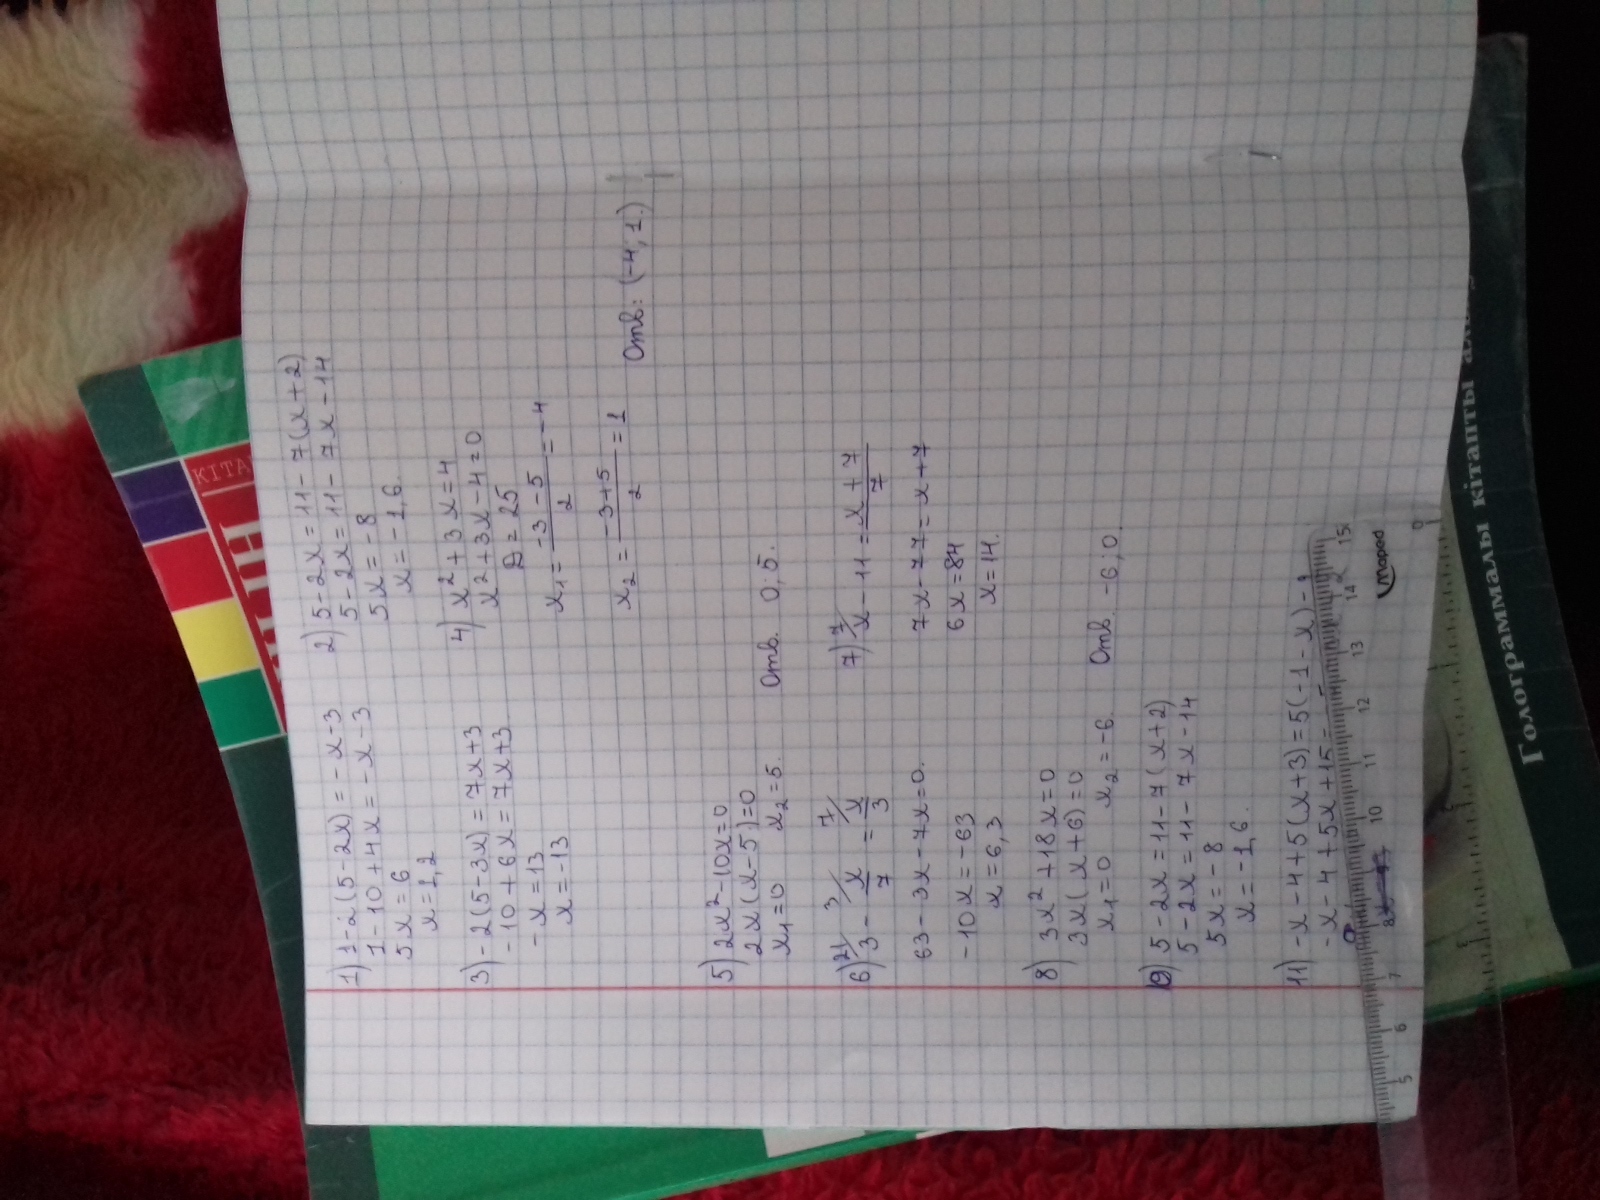 1) 1-2(5-2x)=-x-3
1-10+4x=-x-3
5x=6
x=1,2
2) 5-2x=11-7(x+2)
5-2x=11-7x-14
5x=-8
x=-1,6.
3) -2(5-3x)=7x+3
-10+6x=7x+3
-x=13
x=-13
4) x²+3x=4
x²+3x-4=0
D=25
x₁=(-3-5)/2=-4
x₂=(-3+5)/2=1
Отв: (-4; 1.)
5) 2x²-10x=0
2x(x-5)=0
x₁=0 x₂=5. Отв. 0; 5.
6) 21/3 - 3/x/7 = 7/x/3
63-3x-7x=0.
-10x=-63
x=6,3
7) 7/x-11=(x+7)/7
7x-77=x+7
6x=84
x=14.
8) 3x²+18x=0
3x(x+6)=0
x₁=0 x₂=-6. Отв. -6; 0.
9) 5-2x=11-7(x+2)
5-2x=11-7x-14
5x=-8
x=-1,6.
11) -x-4+5(x+3)=5(-1-x)-
-x-4+5x+15=
5 6 7 8 10 11 12 13 14 15
Maped
0
КІТАП
Голограммалы кітапты